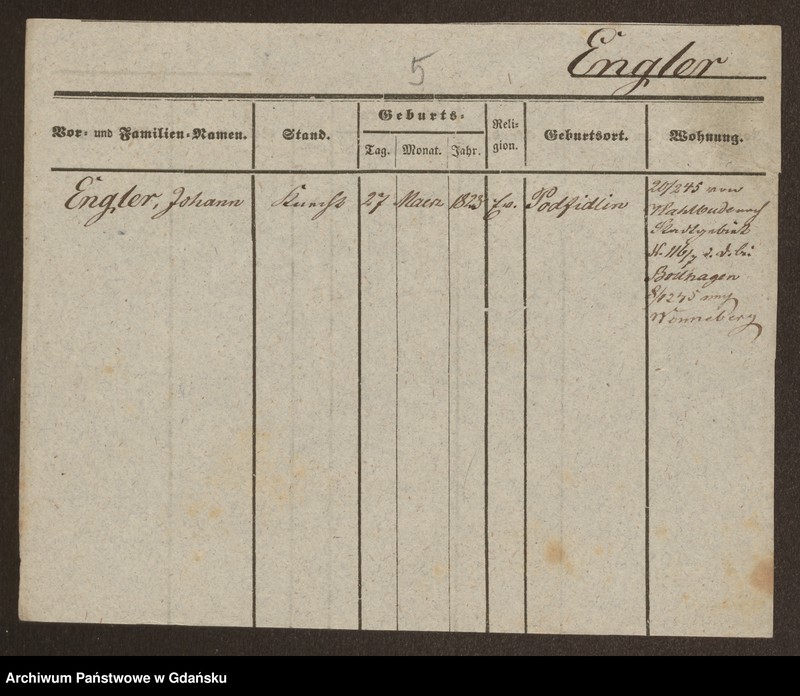 5
Engler
Vor- und Familien-Namen.
Stand.
Geburts-
Tag.
Monat.
Jahr.
Reli-
gion.
Geburtsort.
Wohnung.
Engler, Johann
Knecht
27
Maerz
1823
Ev.
Podfidlin
20/2 45 von
Kahlbude nach
Stadtgebiet
N. 116/7 b.
Bodhagen
45 nach
Wonneberg
Archiwum Państwowe w Gdańsku